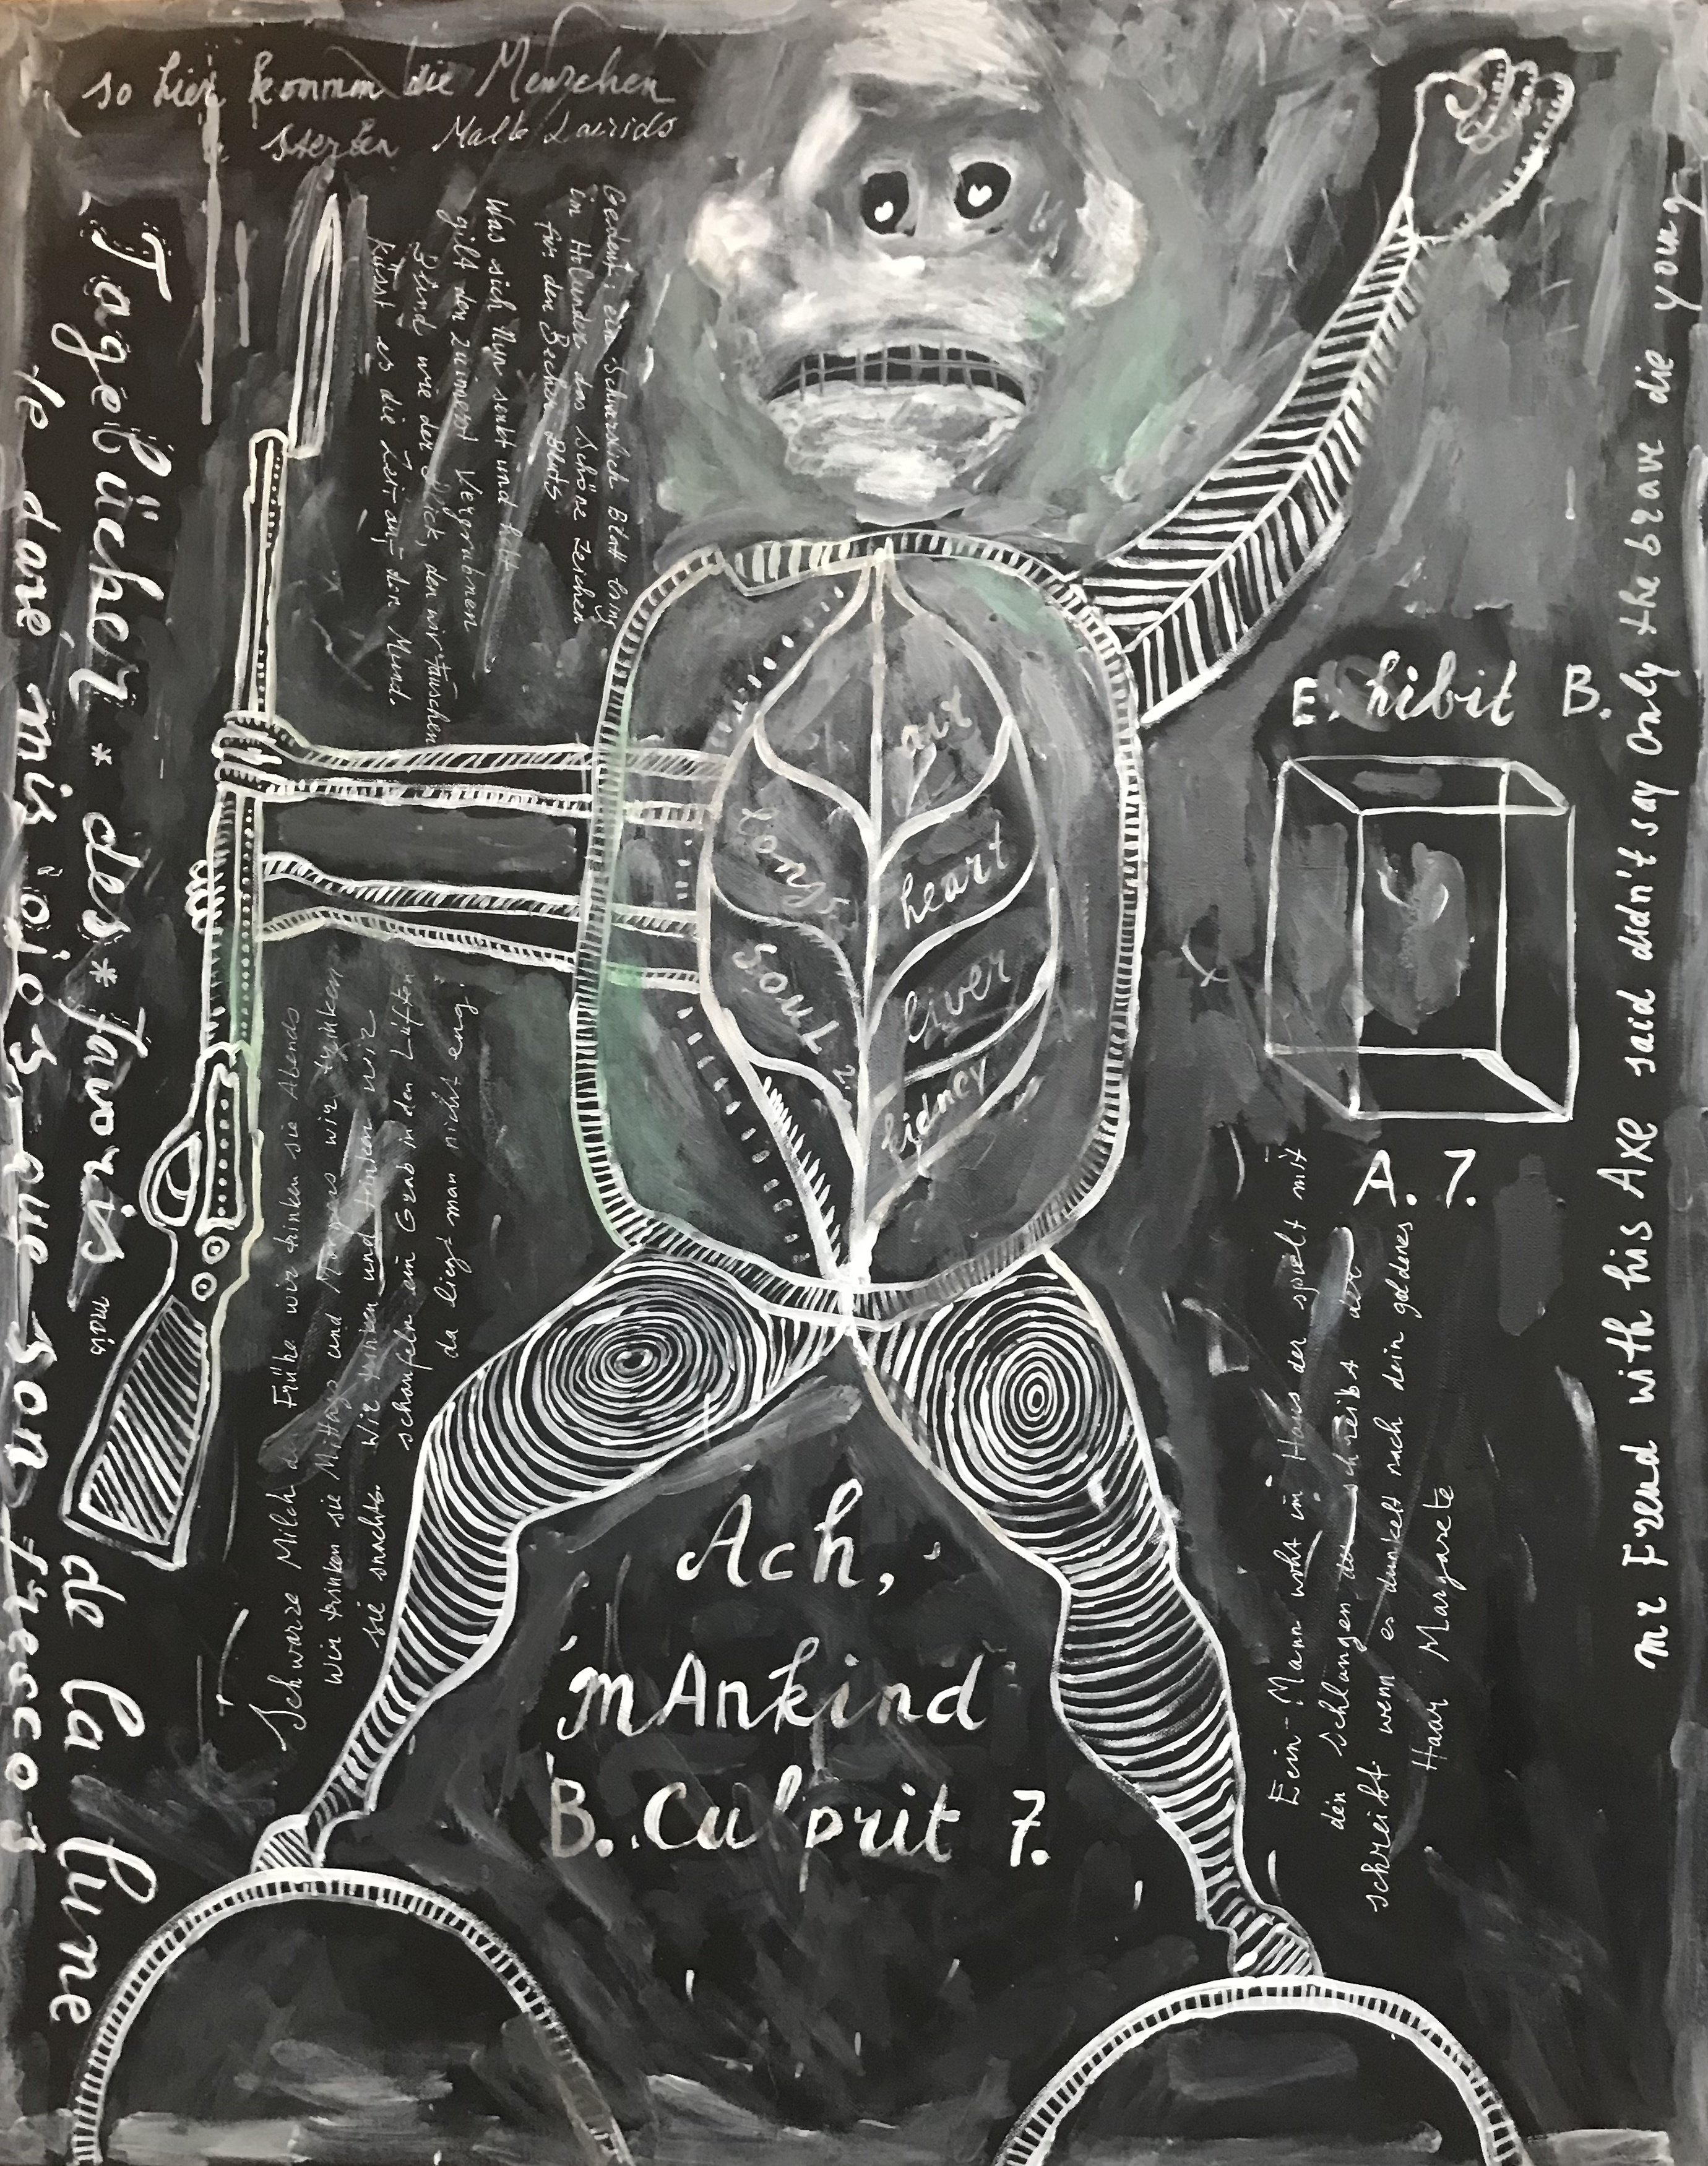 so hier kommen die Menschen
sterben Malte Laurids
Tagebücher * des * favoris mais de la lune
te doné mis ojos que son frescos
Gedenk: ein schwärzlich Blatt hing
im Holunder das schöne Zeichen
für den Becher Bluts
Was sich nun senkt und hebt
gilt den zuinnerst Vergrabnen
Blind wie der Blick, den wir tauschen
küsst es die Zeit auf den Mund
Schwarze Milch der Frühe wir trinken sie Abends
wir trinken sie Mittags und Morgens wir trinken
sie nachts. Wir trinken und trinken wir
schaufeln ein Grab in den Lüften
da liegt man nicht eng.
air
heart
liver
kidney
Exhibit B.
A. 7.
Ein Mann wohnt im Haus der spielt mit
den Schlangen der schreibt der
schreibt wenn es dunkelt nach dein goldenes
Haar Margarete
mr Frend with his Axe said didn't say Only the brave die young
Ach,
mAnkind
B. Culprit 7.